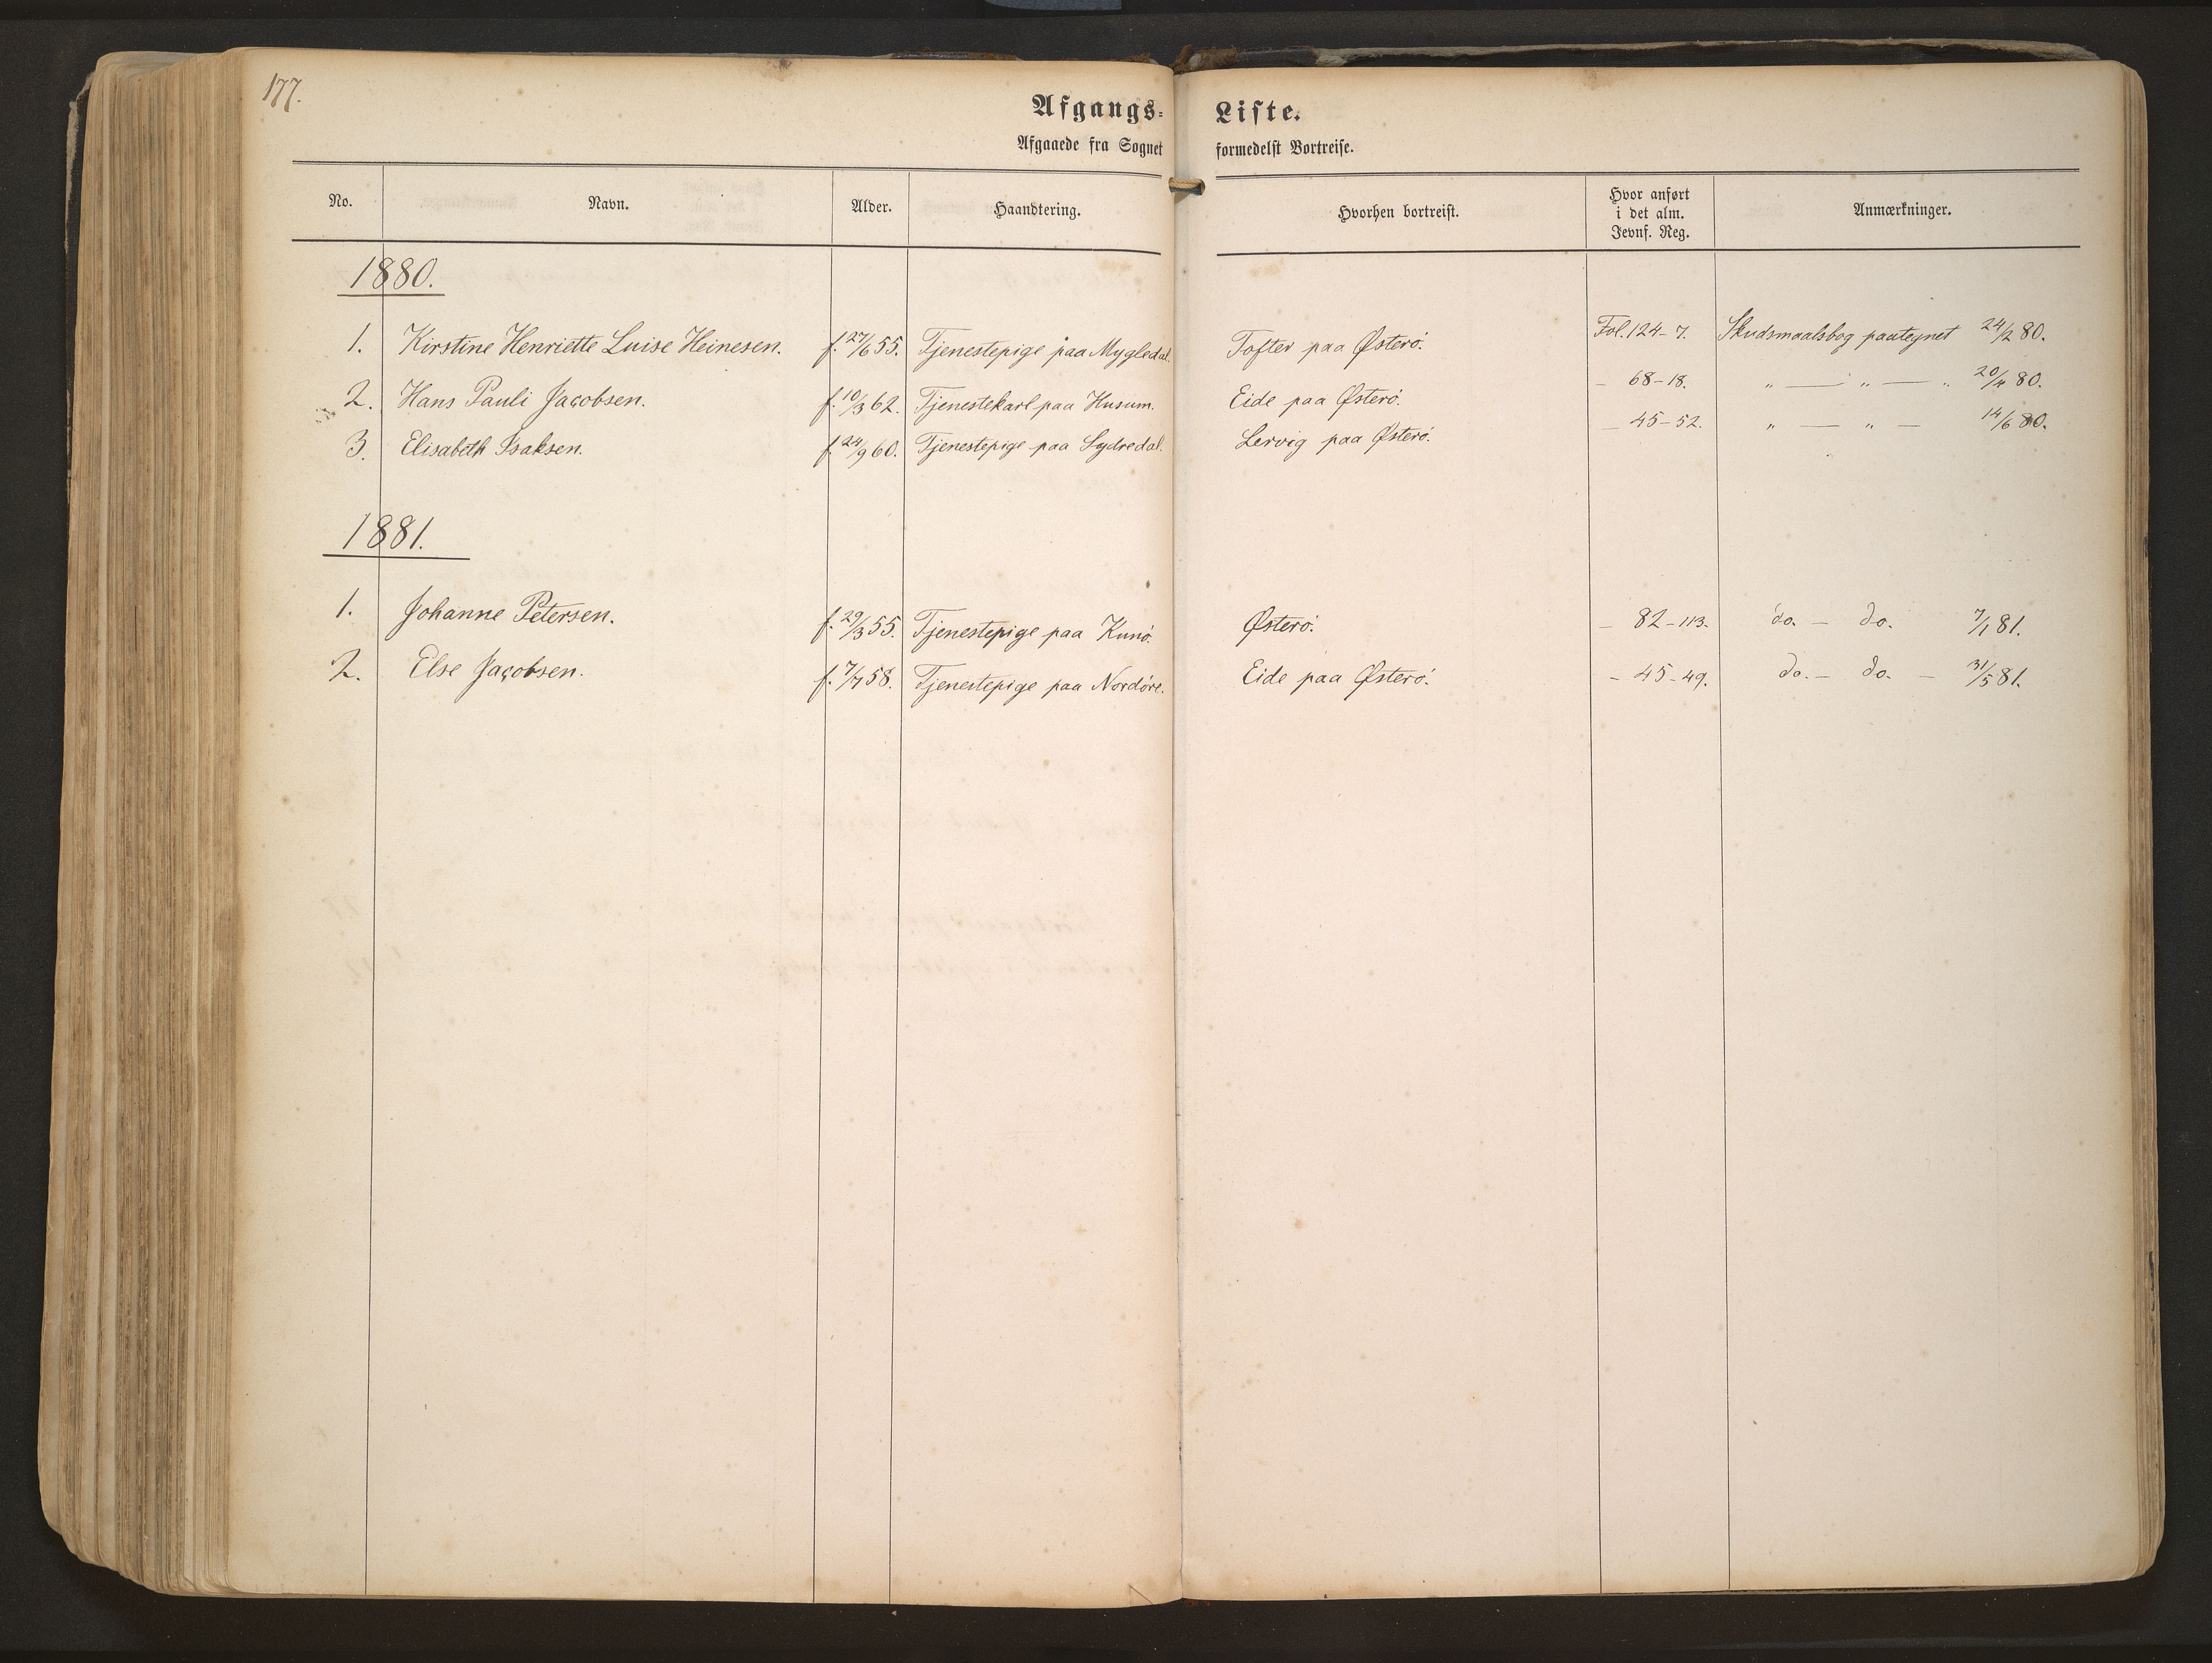 177.
Afgangs- Liste.
Afgaaede fra Sognet formedelst Bortreise.
No. Navn. Alder. Haandtering. Hvorhen bortreist. Hvor anført i det alm. Jevnf. Reg. Anmærkninger.
1880.
1. Kirstine Henriette Luise Heinesen. f. 27/6 55. Tjenestepige paa Mygledal. Tofter paa Østerö. Fol. 124-7. Skudsmaalsbog paategnet 24/2 80.
2. Hans Pauli Jacobsen. f. 10/3 62. Tjenestekarl paa Husum. Eide paa Østerö. - 68-18. " — " — " 20/4 80.
3. Elisabeth Isaksen. f. 24/9 60. Tjenestepige paa Sydredal. Lervig paa Østerö. - 45-52. " — " — 14/6 80.
1881.
1. Johanne Petersen. f. 29/3 55. Tjenestepige paa Kunö. Österö. - 82-113. do. - do. 7/1 81.
2. Else Jacobsen. f. 7/7 58. Tjenestepige paa Nordöre. Eide paa Østerö. - 45-49. do. - do. - 31/5 81.